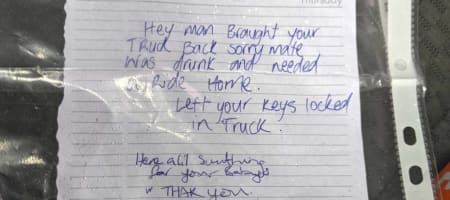 Thursday
Hey man Braught your
Truck Back sorry mate
was drunk and needed
a Ride Home.
Left your keys locked
in Truck.
Heres a lil Sumthing
for your
THAK you.